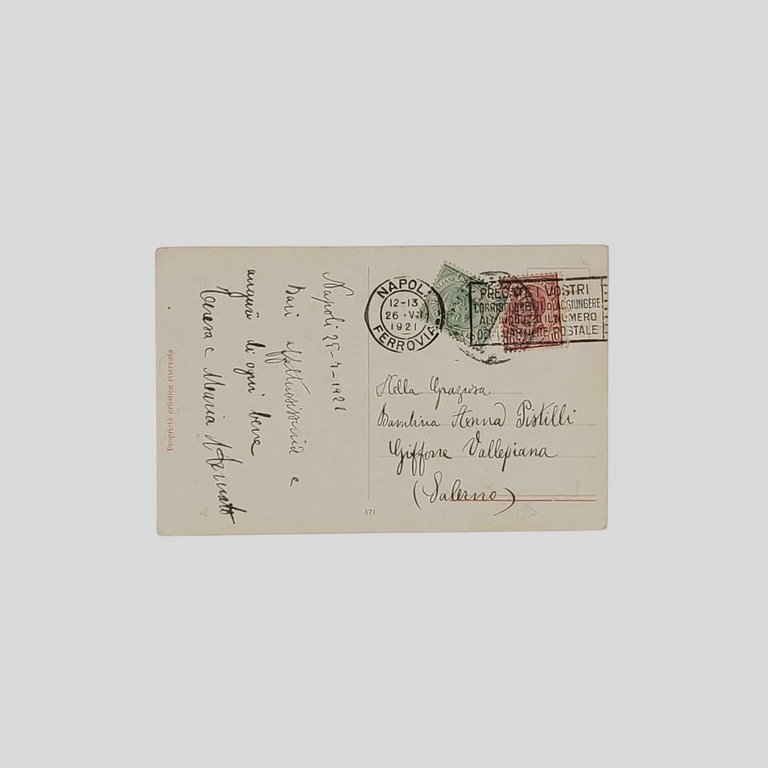 Napoli 25-7-1921
Baci affettuosissimi e
auguri di ogni bene
Teresa e Maria
Proprietà artistica riservata
171
NAPOLI
12-13
26 · VII
1921
FERROVIA
PREGATE I VOSTRI
CORRISPONDENTI D'AGGIUNGERE
ALL'INDIRIZZO IL NUMERO
DEL QUARTIERE POSTALE
Alla Graziosa
Bambina Anna Pistilli
Giffone Vallepiana
(Salerno)